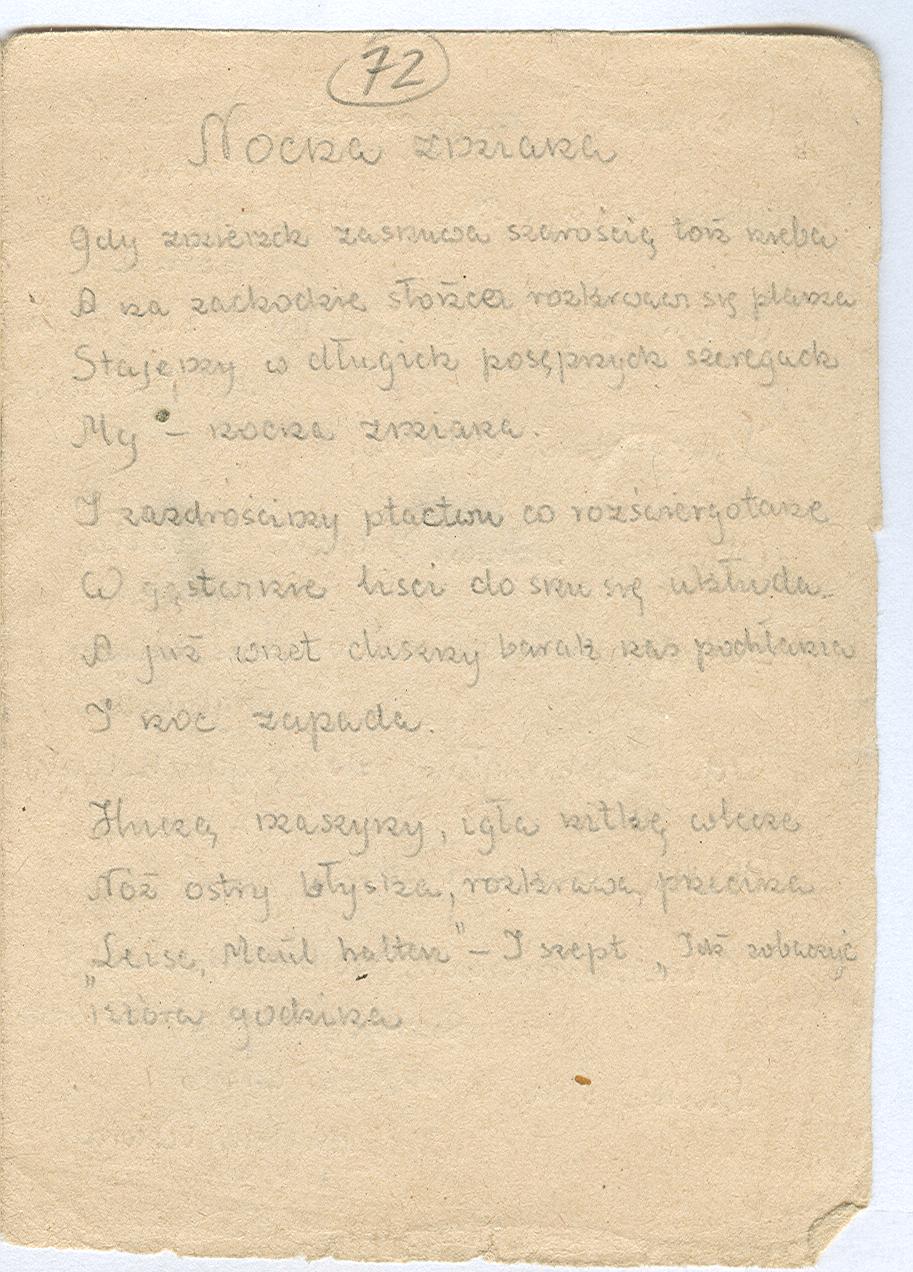 72
Nocna zmiana
Gdy zmierzch zasnuwa szarością toń nieba
A na zachodzie słońca rozkrwawi się plama
Stajemy w długich posępnych szeregach
My – nocna zmiana.
I zazdrościmy ptactwu co rozświergotane
W gęstwinie liści do snu się układa.
A już wnet duszny barak nas pochłania
I noc zapada.
Huczą maszyny, igła nitkę wlecze
Nóż ostry błyska, rozkrawa, przecina
„Leise, Maul halten" – I szept. „Idź zobaczyć
która godzina